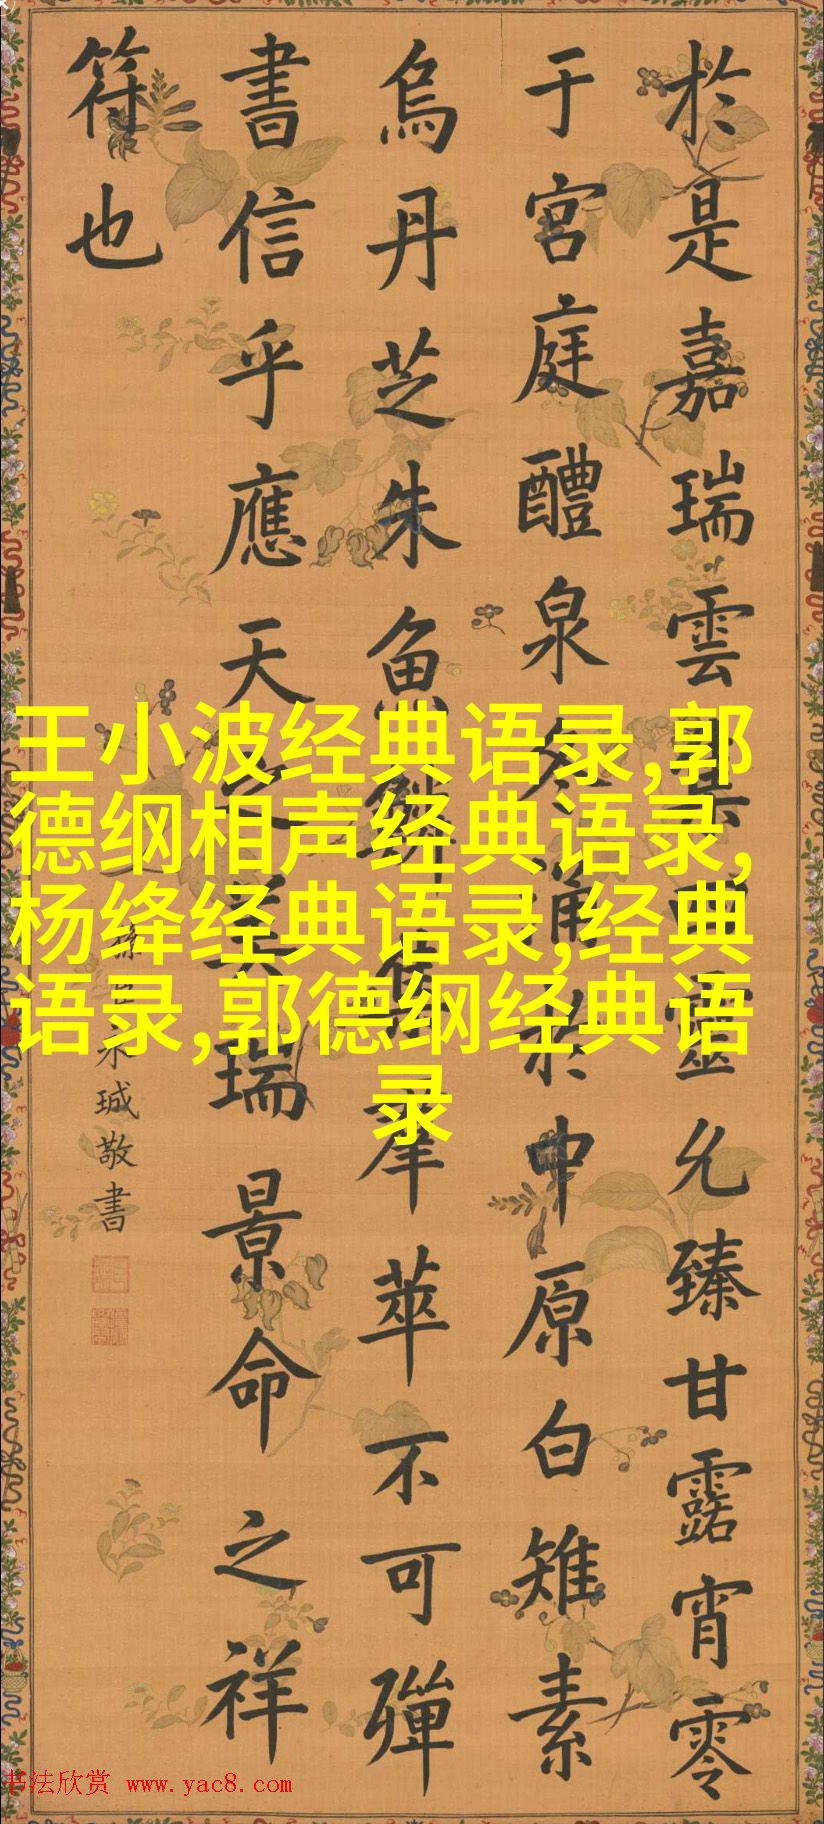 於是嘉瑞雲靈允臻甘露宵零
于宮庭醴泉於中原白雉素
烏丹芝朱魚鱗萃不可殫
書信乎應天之美瑞景命之祥
符也
永珹敬書
王小波经典语录,郭
德纲相声经典语录,
杨绛经典语录,经典
语录,郭德纲经典语
录
书法欣赏 www.yac8.com